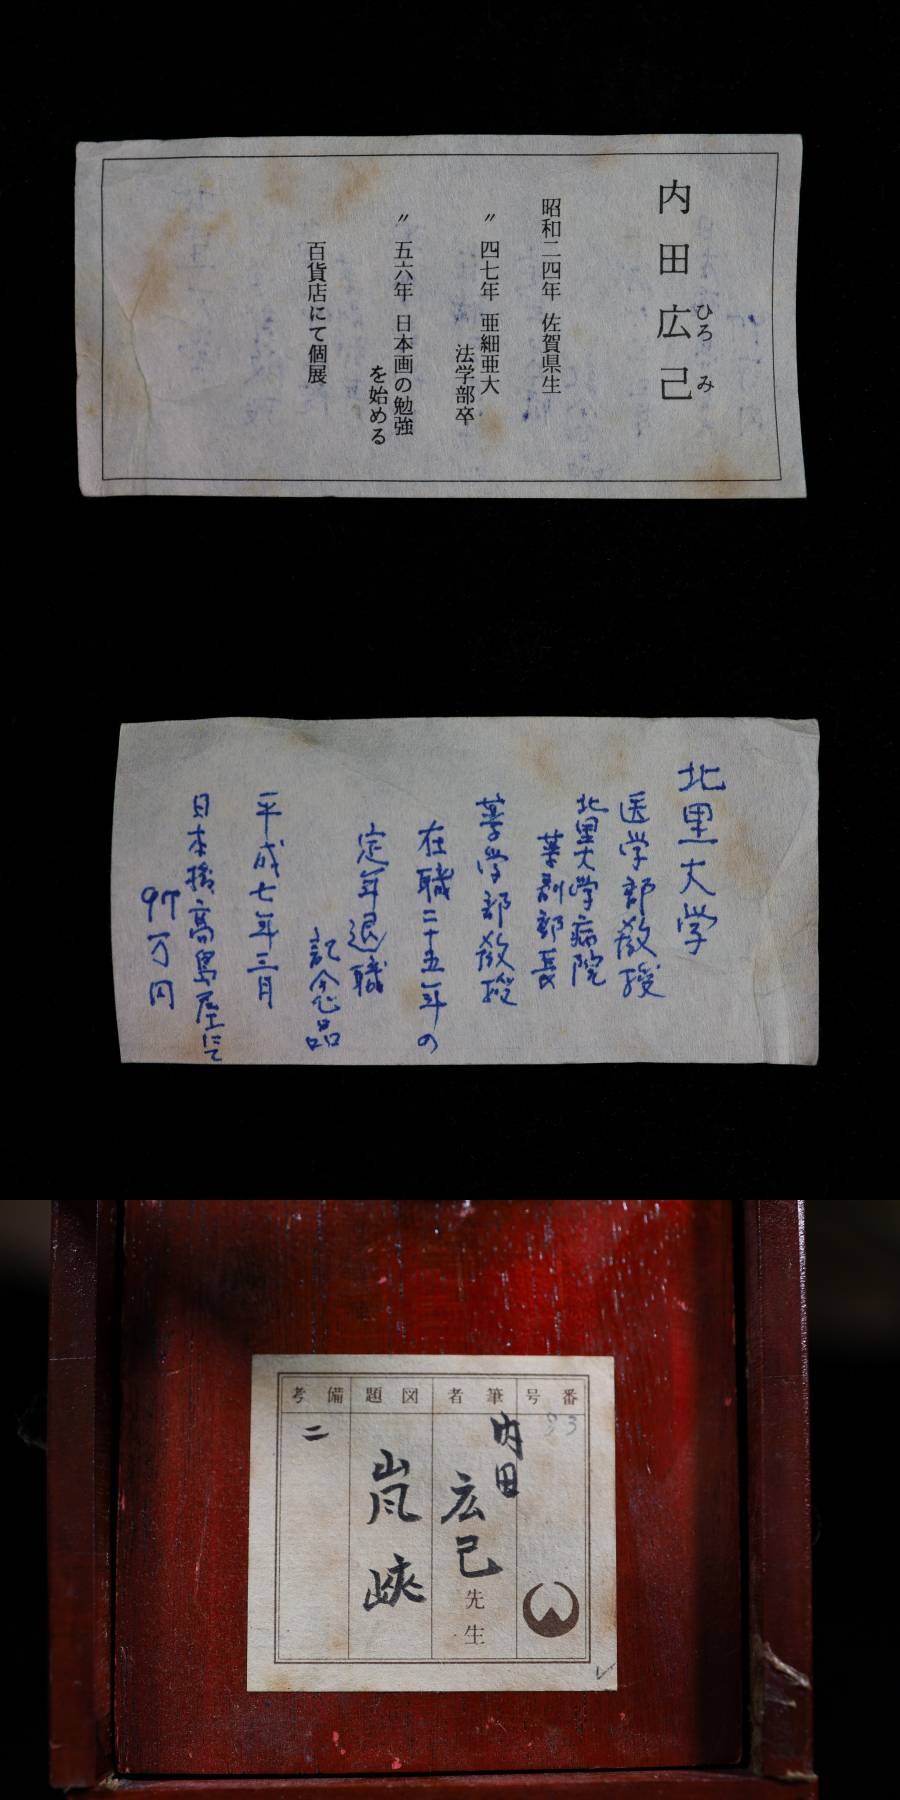 内田広己
ひろみ
昭和二四年 佐賀県生
〃 四七年 亜細亜大
法学部卒
〃 五六年 日本画の勉強
を始める
百貨店にて個展
北里大学
医学部教授
北里大学病院
薬剤部長
薬学部教授
在職二十五年の
定年退職
記念品
平成七年三月
日本橋高島屋にて
97万円
番号
93
筆者
内田
広己
先生
図題
嵐峡
備考
二